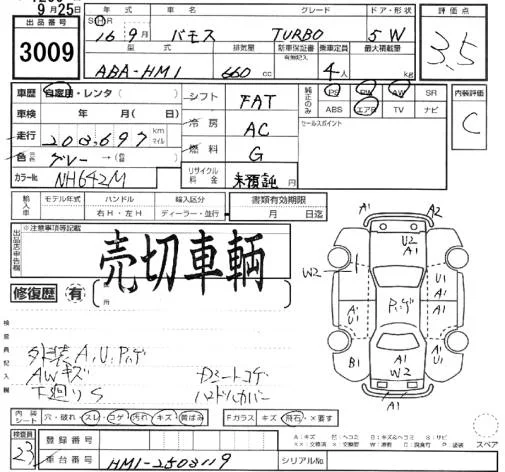 9月25日
出品番号 3009
年式 車名 グレード ドア・形状
SHR 16年9月 バモス TURBO 5W
型式 排気量 新車保証書 有無記入 乗車定員 最大積載量
ABA-HM1 660cc 4人 kg
評価点 3.5
車歴 自家用・レンタ( )
車検 年 月( 日)
走行 208,697 km マイル
色 グレー→(色 )
カラーNo. NH642M
シフト FAT
冷房 AC
燃料 G
リサイクル料金 未預託 円
純正のみ PS PW AW SR
ABS エアB TV ナビ
セールスポイント
内装評価 C
輸入車 モデル年式 ハンドル 輸入区分 書類有効期限
右H・左H ディーラー・並行 月 日迄
出品店申告欄 ※注意事項等記載
売切車輌
修復歴 有 箇所
検査員記入欄
外装A,U,Pハゲ
AWキズ
下廻りS
内シートコゲ
ハンドルカバー
A1 A2
U2 A1
W2
A1 U1 Pハゲ U1 A1
B1 A1 W2 A1 U1
A1
内装シート 穴・破れ・スレ・コゲ・汚れ・キズ・黄ばみ Fガラス キズ・飛石・×要す
検査員 23
登録番号
車台番号 HM1-2508119 シリアルNo.
A:キズ E:ヘコミ B:キズ&ヘコミ S:サビ
スペア